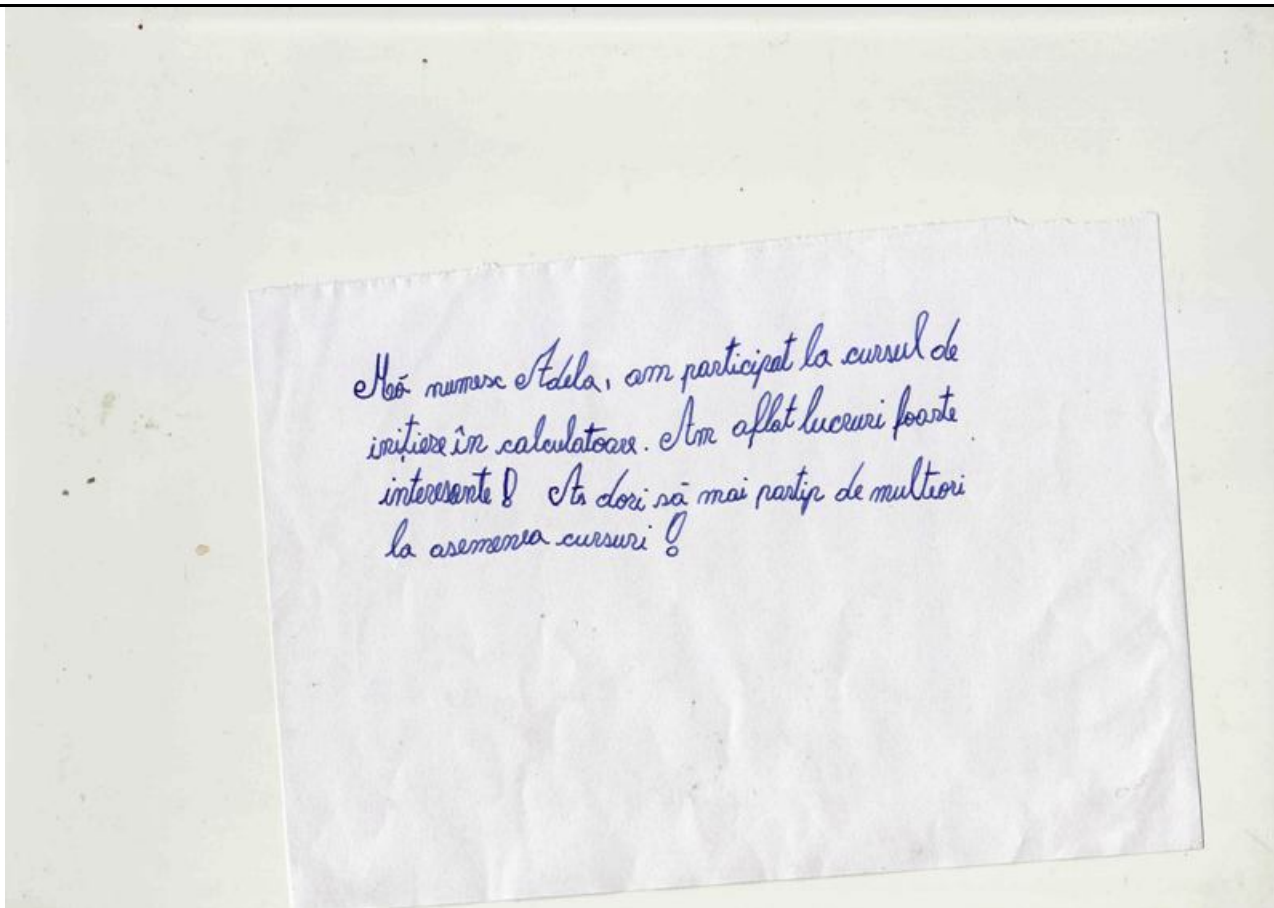 Mă numesc Adela, am participat la cursul de
inițiere în calculatoare. Am aflat lucruri foarte
interesante! As dori să mai partip de multeori
la asemenea cursuri!